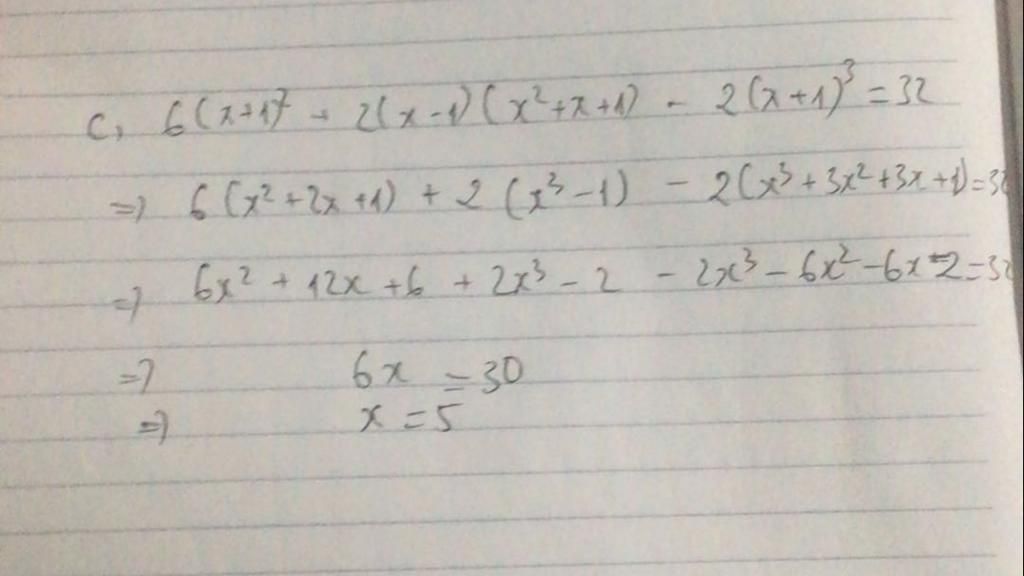 c, 6(x+1)² + 2(x-1)(x²+x+1) - 2(x+1)³ = 32
=> 6(x²+2x+1) + 2(x³-1) - 2(x³+3x²+3x+1)=32
=> 6x² + 12x + 6 + 2x³ - 2 - 2x³ - 6x² - 6x - 2 = 32
=> 6x = 30
=> x = 5